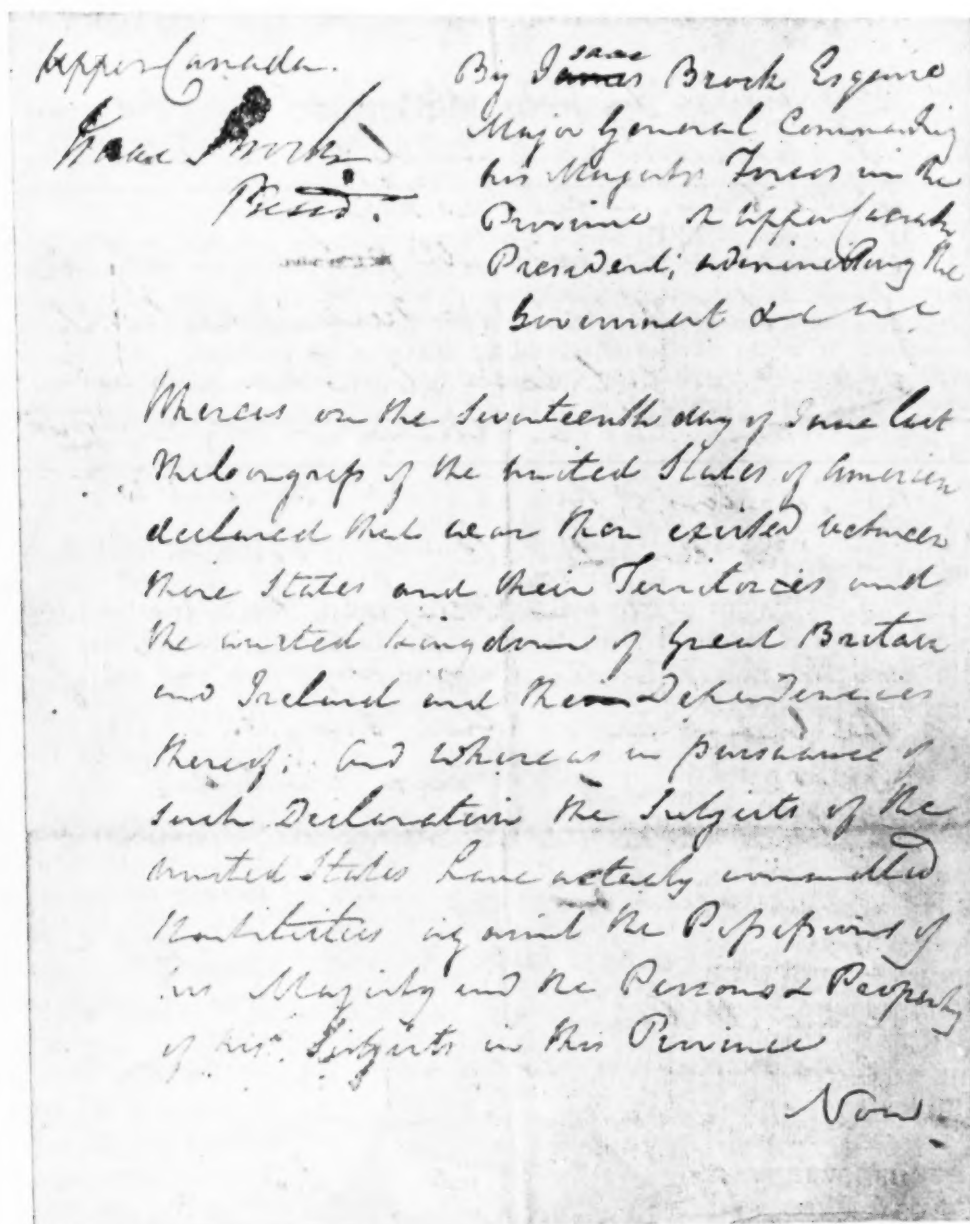 Upper Canada.
Isaac Brock
Presdt.
By Isaac Brock Esquire
Major General Commanding
his Majestys Forces in the
Province of Upper Canada
President, administering the
Government &c &c &c
Whereas on the Seventeenth day of June last
the Congress of the united States of America
declared that war then existed between
those States and their Territories and
the united kingdom of Great Britain
and Ireland and the Dependencies
thereof; And whereas in pursuance of
such Declaration the Subjects of the
united States have actually committed
Hostilities against the Possessions of
his Majesty and the Persons & Property
of his Subjects in this Province
Now